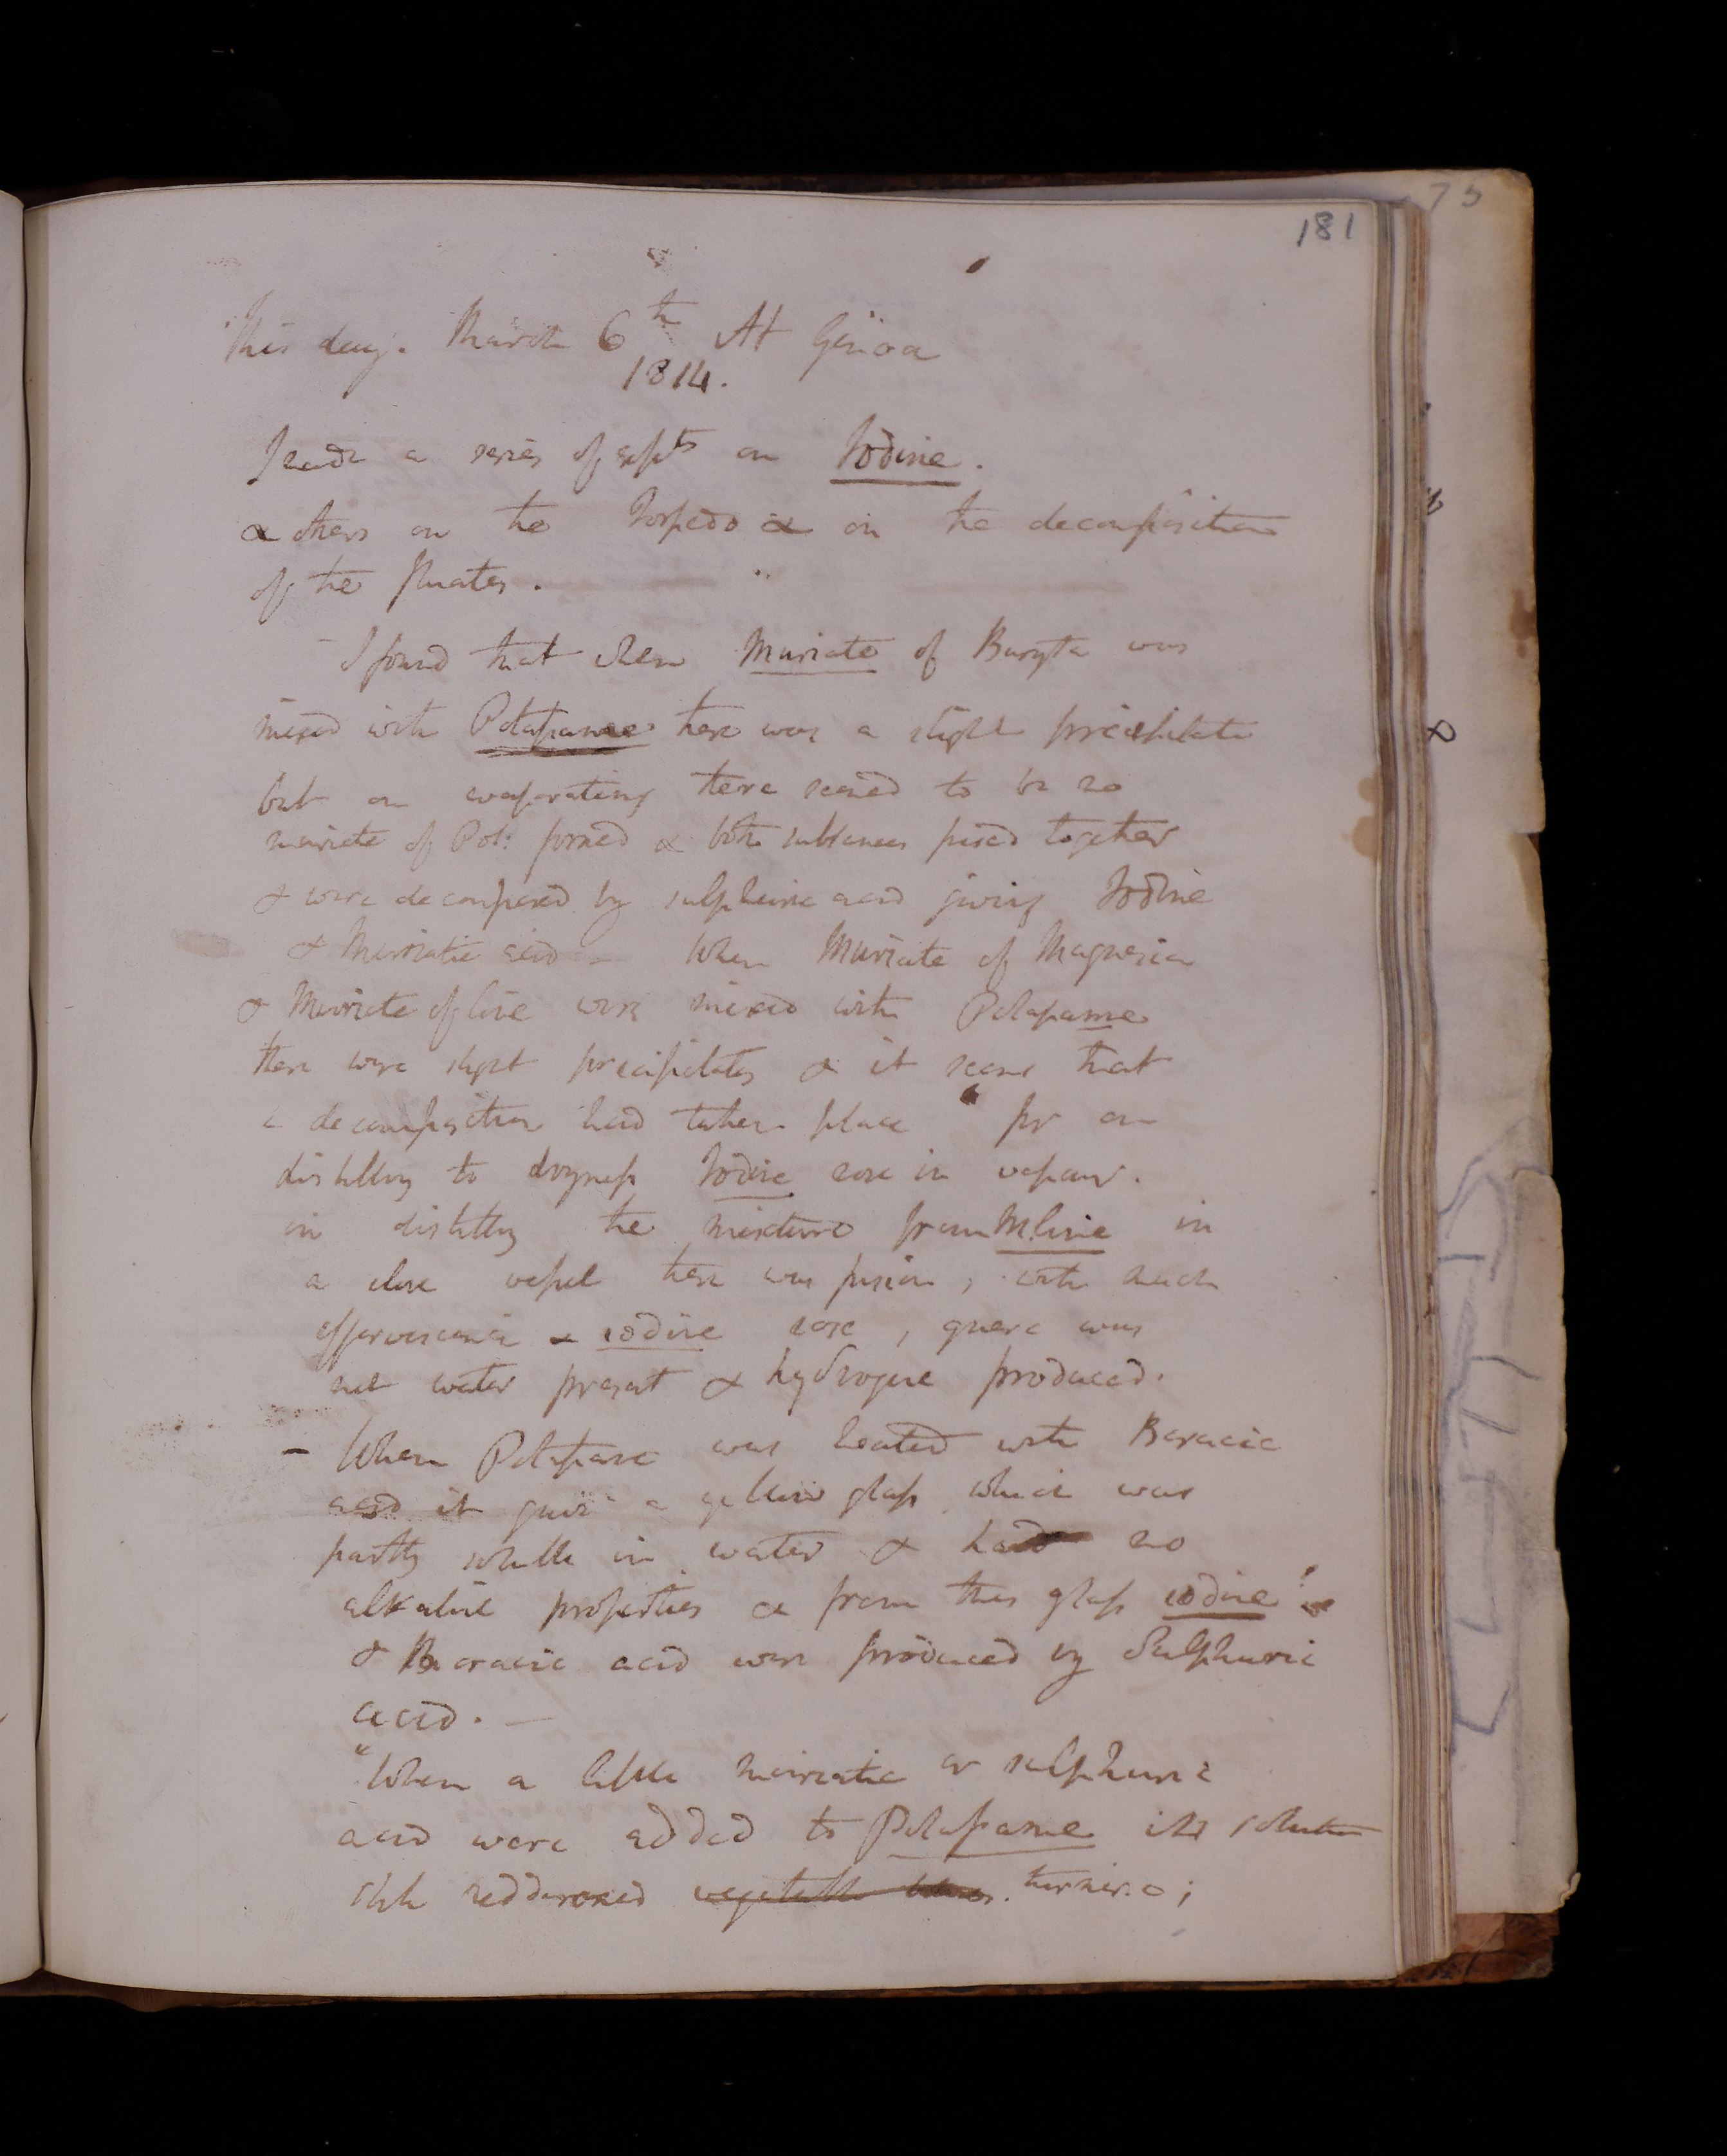 181
75
This day. March 6th At Genoa
1814.
I made a series of expts on Iodine.
& others on the Torpedo & on the decomposition
of the fluates.
- I found that when Muriate of Baryta was
mixed with Potasame there was a slight precipitate
but on evaporating there seemed to be no
muriate of Pot: formed & both substances fused together
& were decomposed by sulphuric acid giving Iodine
& Muriatic acid - When Muriate of Magnesia
& Muriate of lime were mixed with Potasame
there were slight precipitates & it seems that
a decomposition had taken place for on
distilling to dryness Iodine rose in vapour.
in distilling the mixture from M. lime in
a close vessel there was fusion, with much
effervescence & iodine rose, quere was
not water present & hydrogene produced.
- When Potasame was heated with Boracic
acid it gave a yellow glass which was
partly soluble in water & had no
alkaline properties & from this glass iodine
& Boracic acid were produced by Sulphuric
acid. -
"When a little muriatic or sulphuric
acid were added to Potasame its solution
still reddened vegetable turmeric;